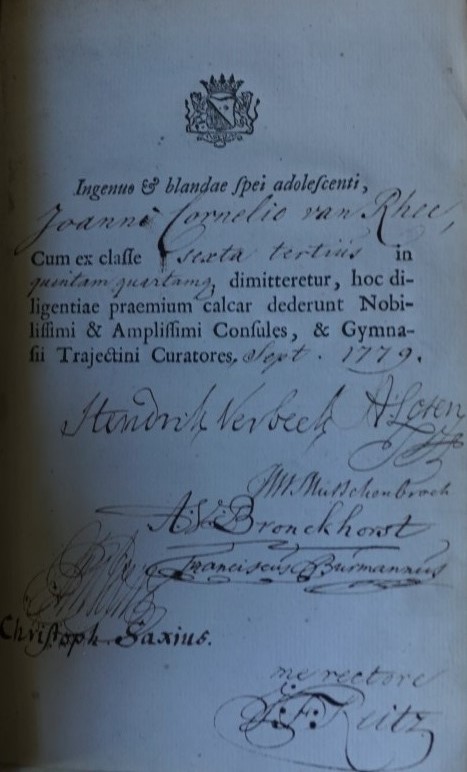 Ingenuo & blandae ſpei adoleſcenti,
Joanni Cornelio van Rhee,
Cum ex claſſe ſexta tertiis in
quintam quartamq, dimitteretur, hoc di-
ligentiae praemium calcar dederunt Nobi-
liſſimi & Ampliſſimi Conſules, & Gymna-
ſii Trajectini Curatores, Sept. 1779.
Hendrik Verbeek A: Loten
Musschenbroek
A.V. Bronckhorst
Franciscus Burmannus
Chriſtoph. Saxius.
me rectore
J: F: Reitz